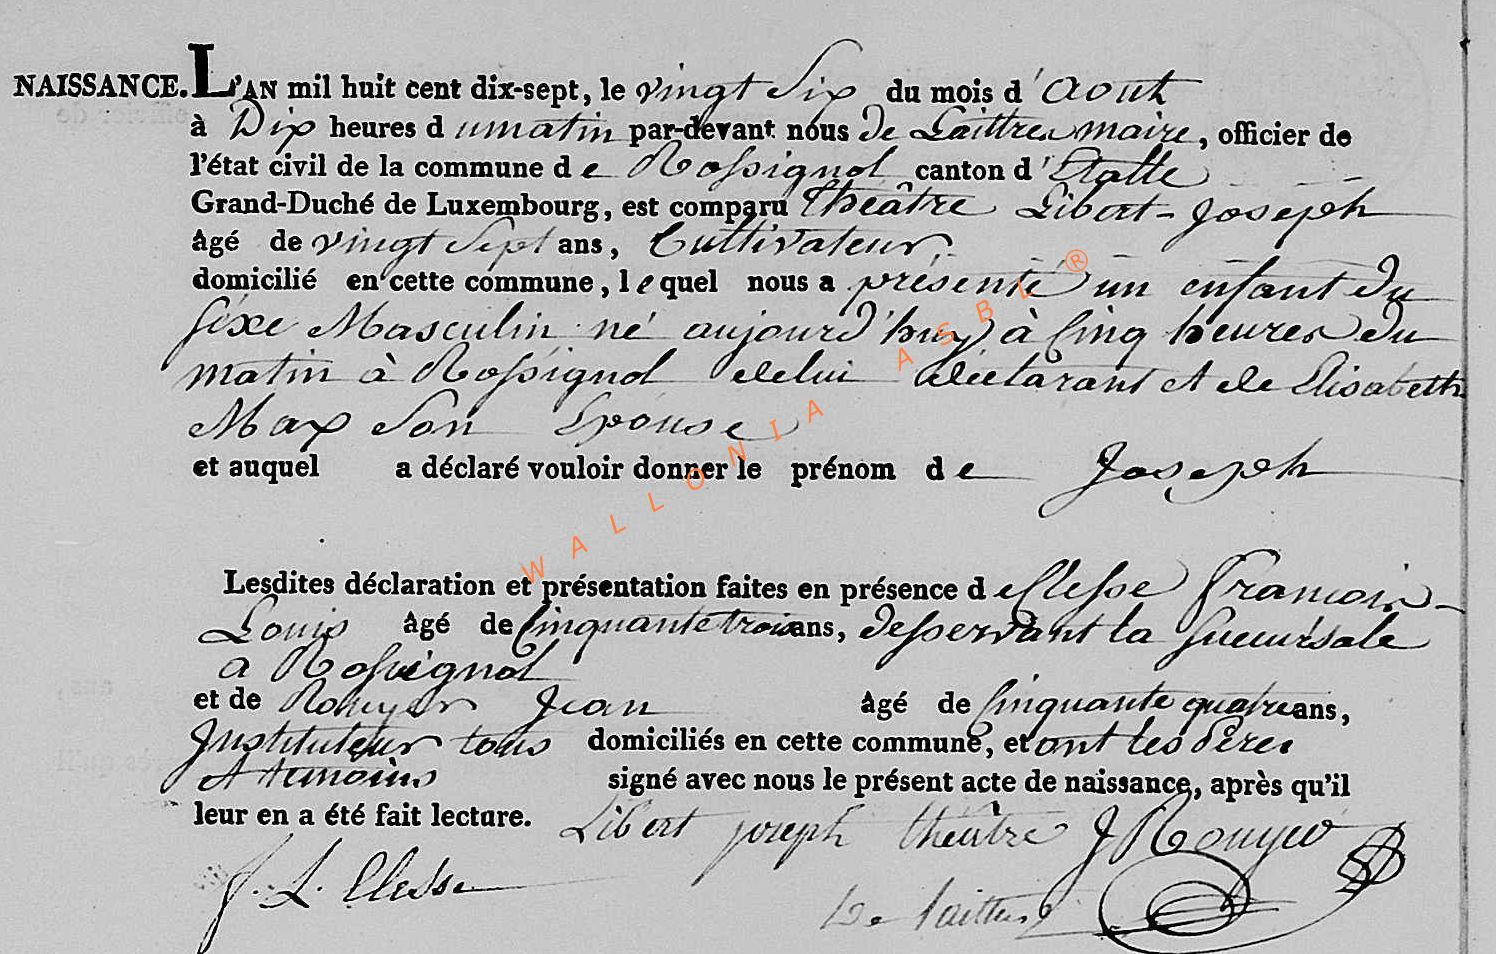 NAISSANCE. L'AN mil huit cent dix-sept, le vingt Six du mois d'aout
à Dix heures d umatin par-devant nous De Laittres maire, officier de
l'état civil de la commune d e Rossignol canton d'Etalle
Grand-Duché de Luxembourg, est comparu Théâtre Libert-Joseph
âgé de vingt Sept ans, Cultivateur
domicilié en cette commune, l e quel nous a présenté un enfant Du
Sexe Masculin né aujourd'huy à Cinq heures Du
matin à Rossignol de lui déclarant et de Elisabeth
Max Son Epouse
et auquel a déclaré vouloir donner le prénom d e Joseph
Lesdites déclaration et présentation faites en présence d e Clesse François
Louis âgé de Cinquante trois ans, Desservant la Succursale
a Rossignol
et de Rouyer Jean âgé de Cinquante quatre ans,
Instituteur tous domiciliés en cette commune, et ont les Père
et temoins signé avec nous le présent acte de naissance, après qu'il
leur en a été fait lecture. Libert joseph théâtre J Rouyer
f. L. Clesse De Laittres
WALLONIA ASBL ®